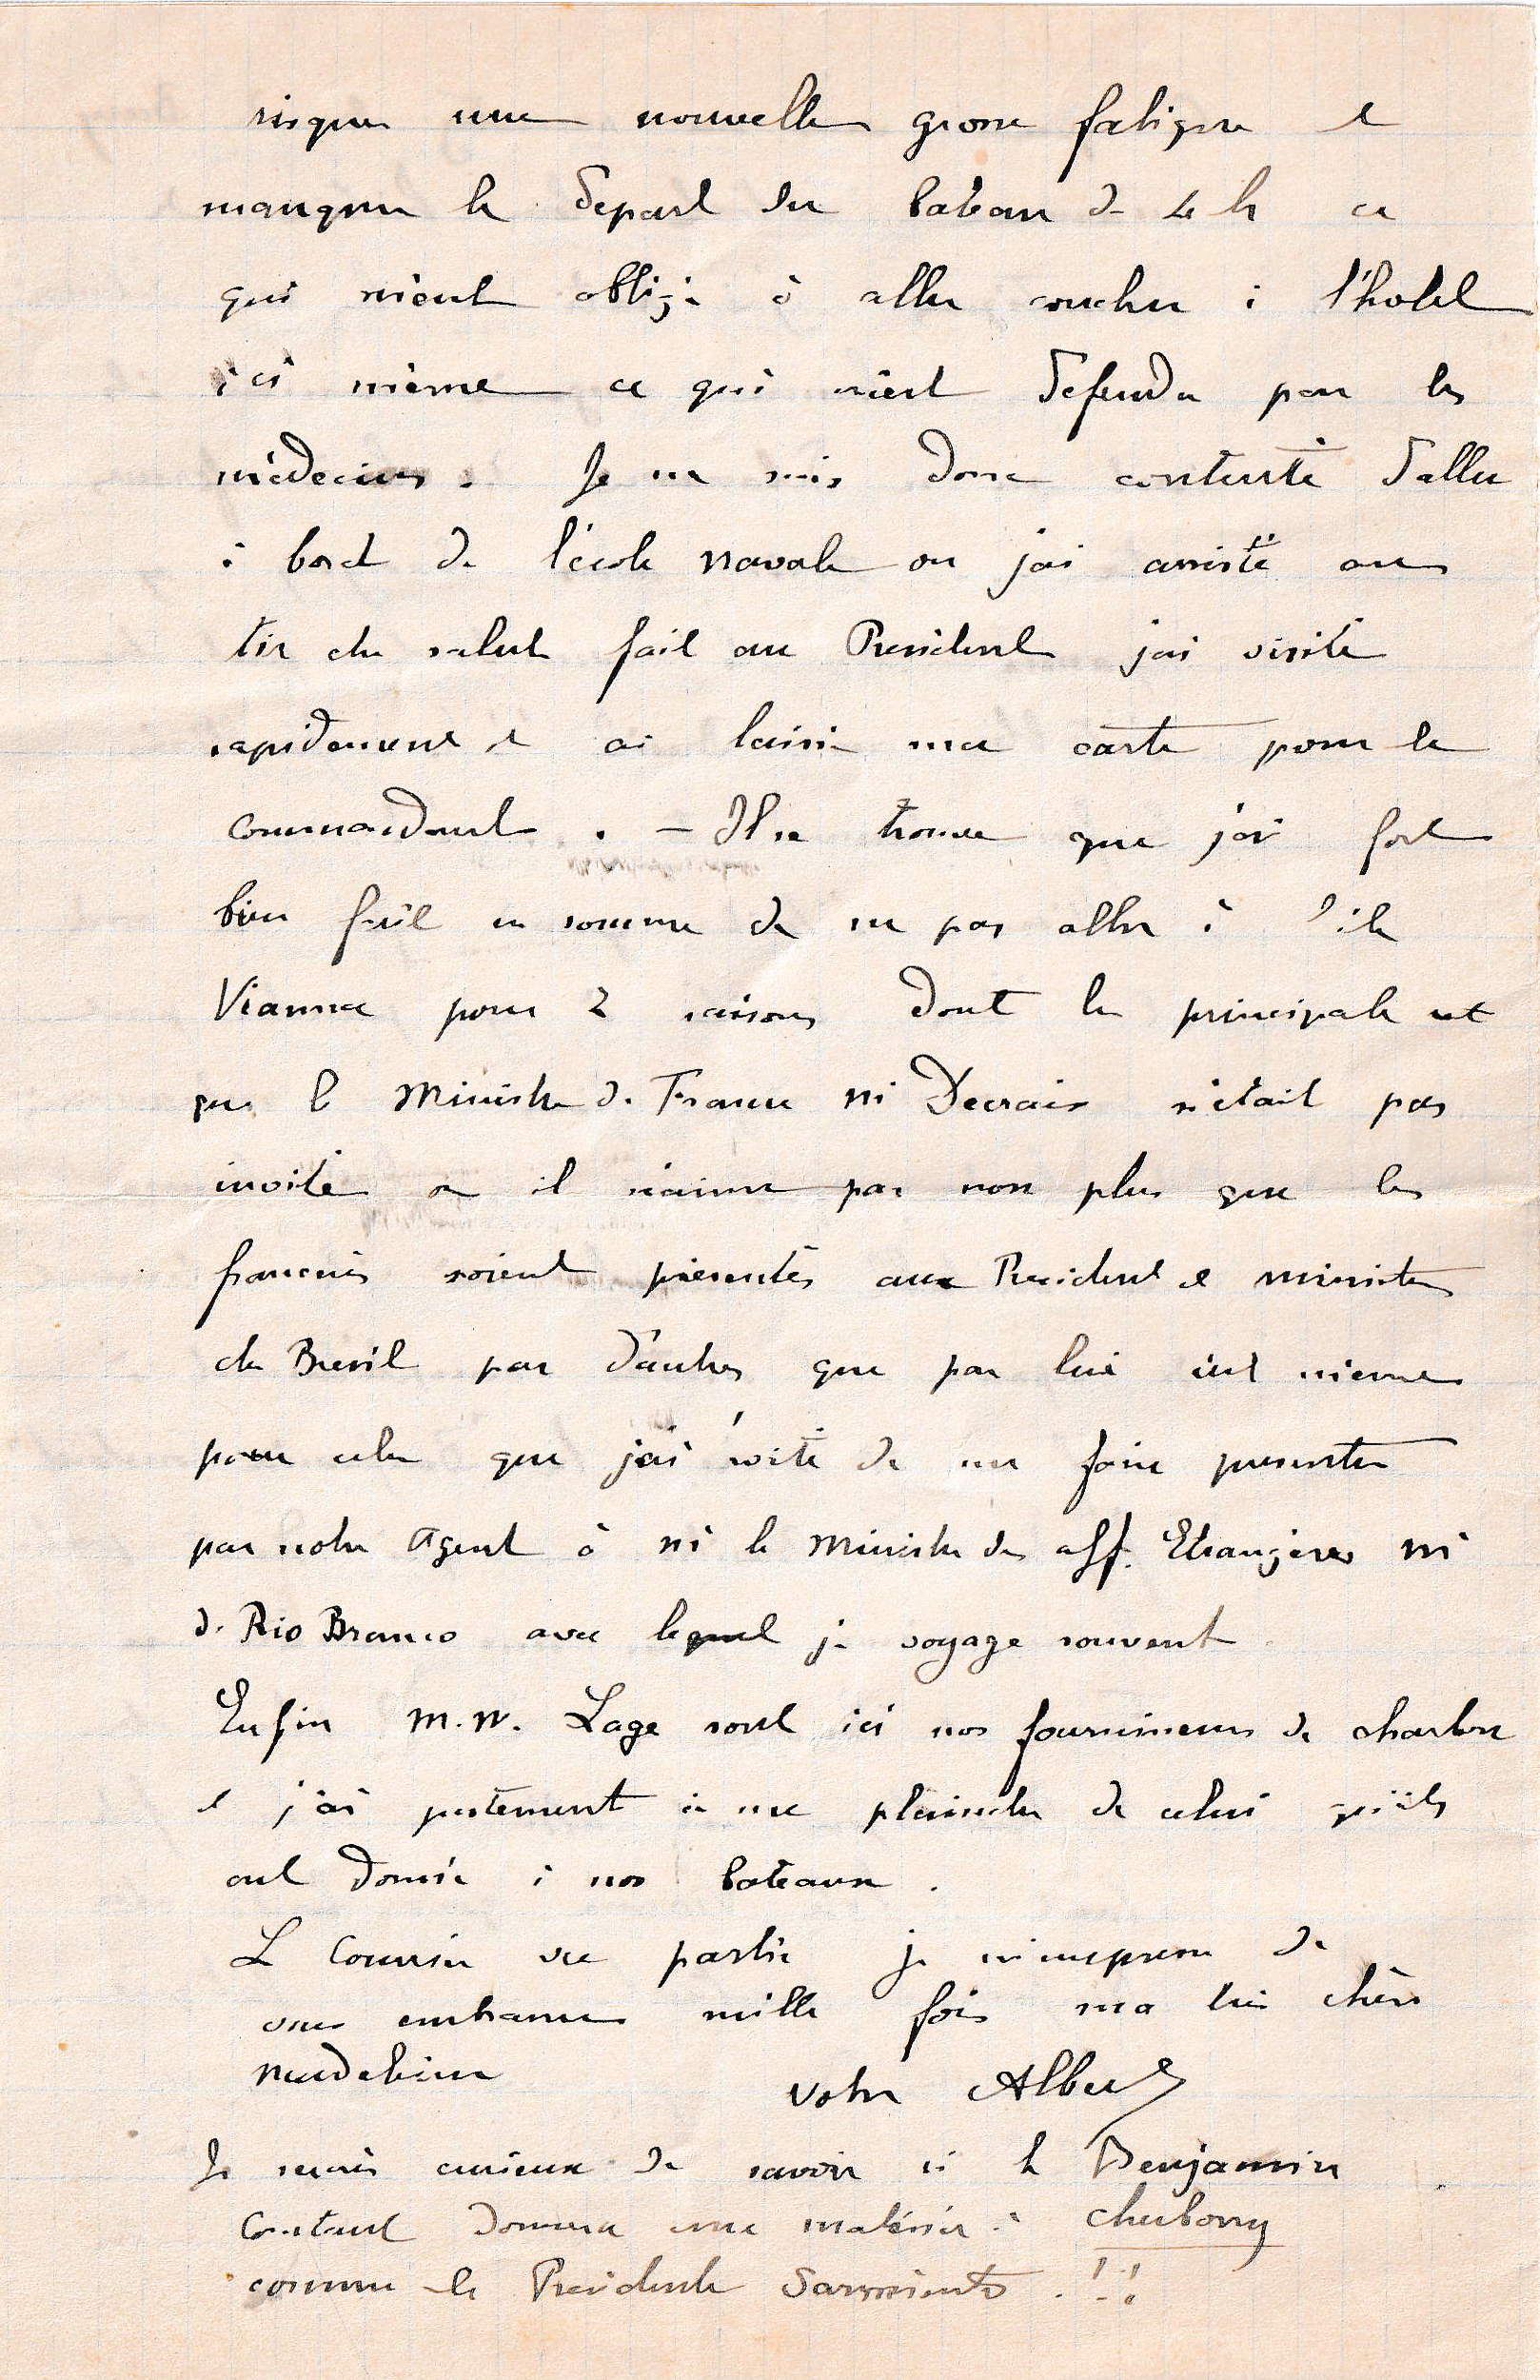 risquer une nouvelle grosse fatigue et
manquer le départ du bateau de 4 h ce
qui m'eut obligé à aller coucher à l'hotel
ici même ce qui m'est défendu par les
médecins. Je me suis donc contenté d'aller
à bord de l'école navale ou j'ai assisté au
tir du salut fait au President j'ai visité
rapidement et ai laissé ma carte pour le
commandant. — Il se trouve que j'ai fort
bien fait en somme de ne pas aller à l'ile
Vianna pour 2 raisons dont la principale est
que le Ministre de France ni Decrais n'était pas
invité or il n'aime pas non plus que les
français soient présentés aux President et ministres
du Bresil par d'autres que par lui c'est même
pour cela que j'ai évité de me faire presenter
par notre agent à ni le Ministre des aff. Etrangères ni
de Rio Branco avec lequel je voyage souvent
Enfin M.M. Lage sont ici nos fournisseurs de charbon
et j'ai justement à me plaindre de celui qu'ils
ont donné à nos bateaux.
Le Courrier va partir je m'empresse de
vous embrasser mille fois ma très chère
Madeleine
Votre Albert
Je serais curieux de savoir si le Benjamin
Constant donnera une matinée à Cherbourg
comme le Presidente Sarmiento. !!